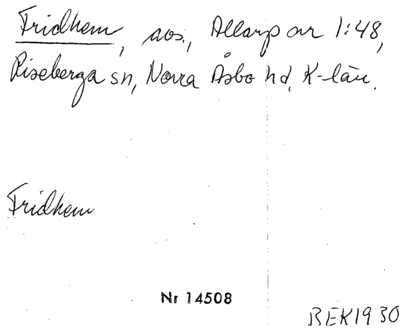 Fridhem, aos., Allarp ar 1:48,
Riseberga sn, Norra Åsbo hd, K-län.
Fridhem
Nr 14508
BEK1930